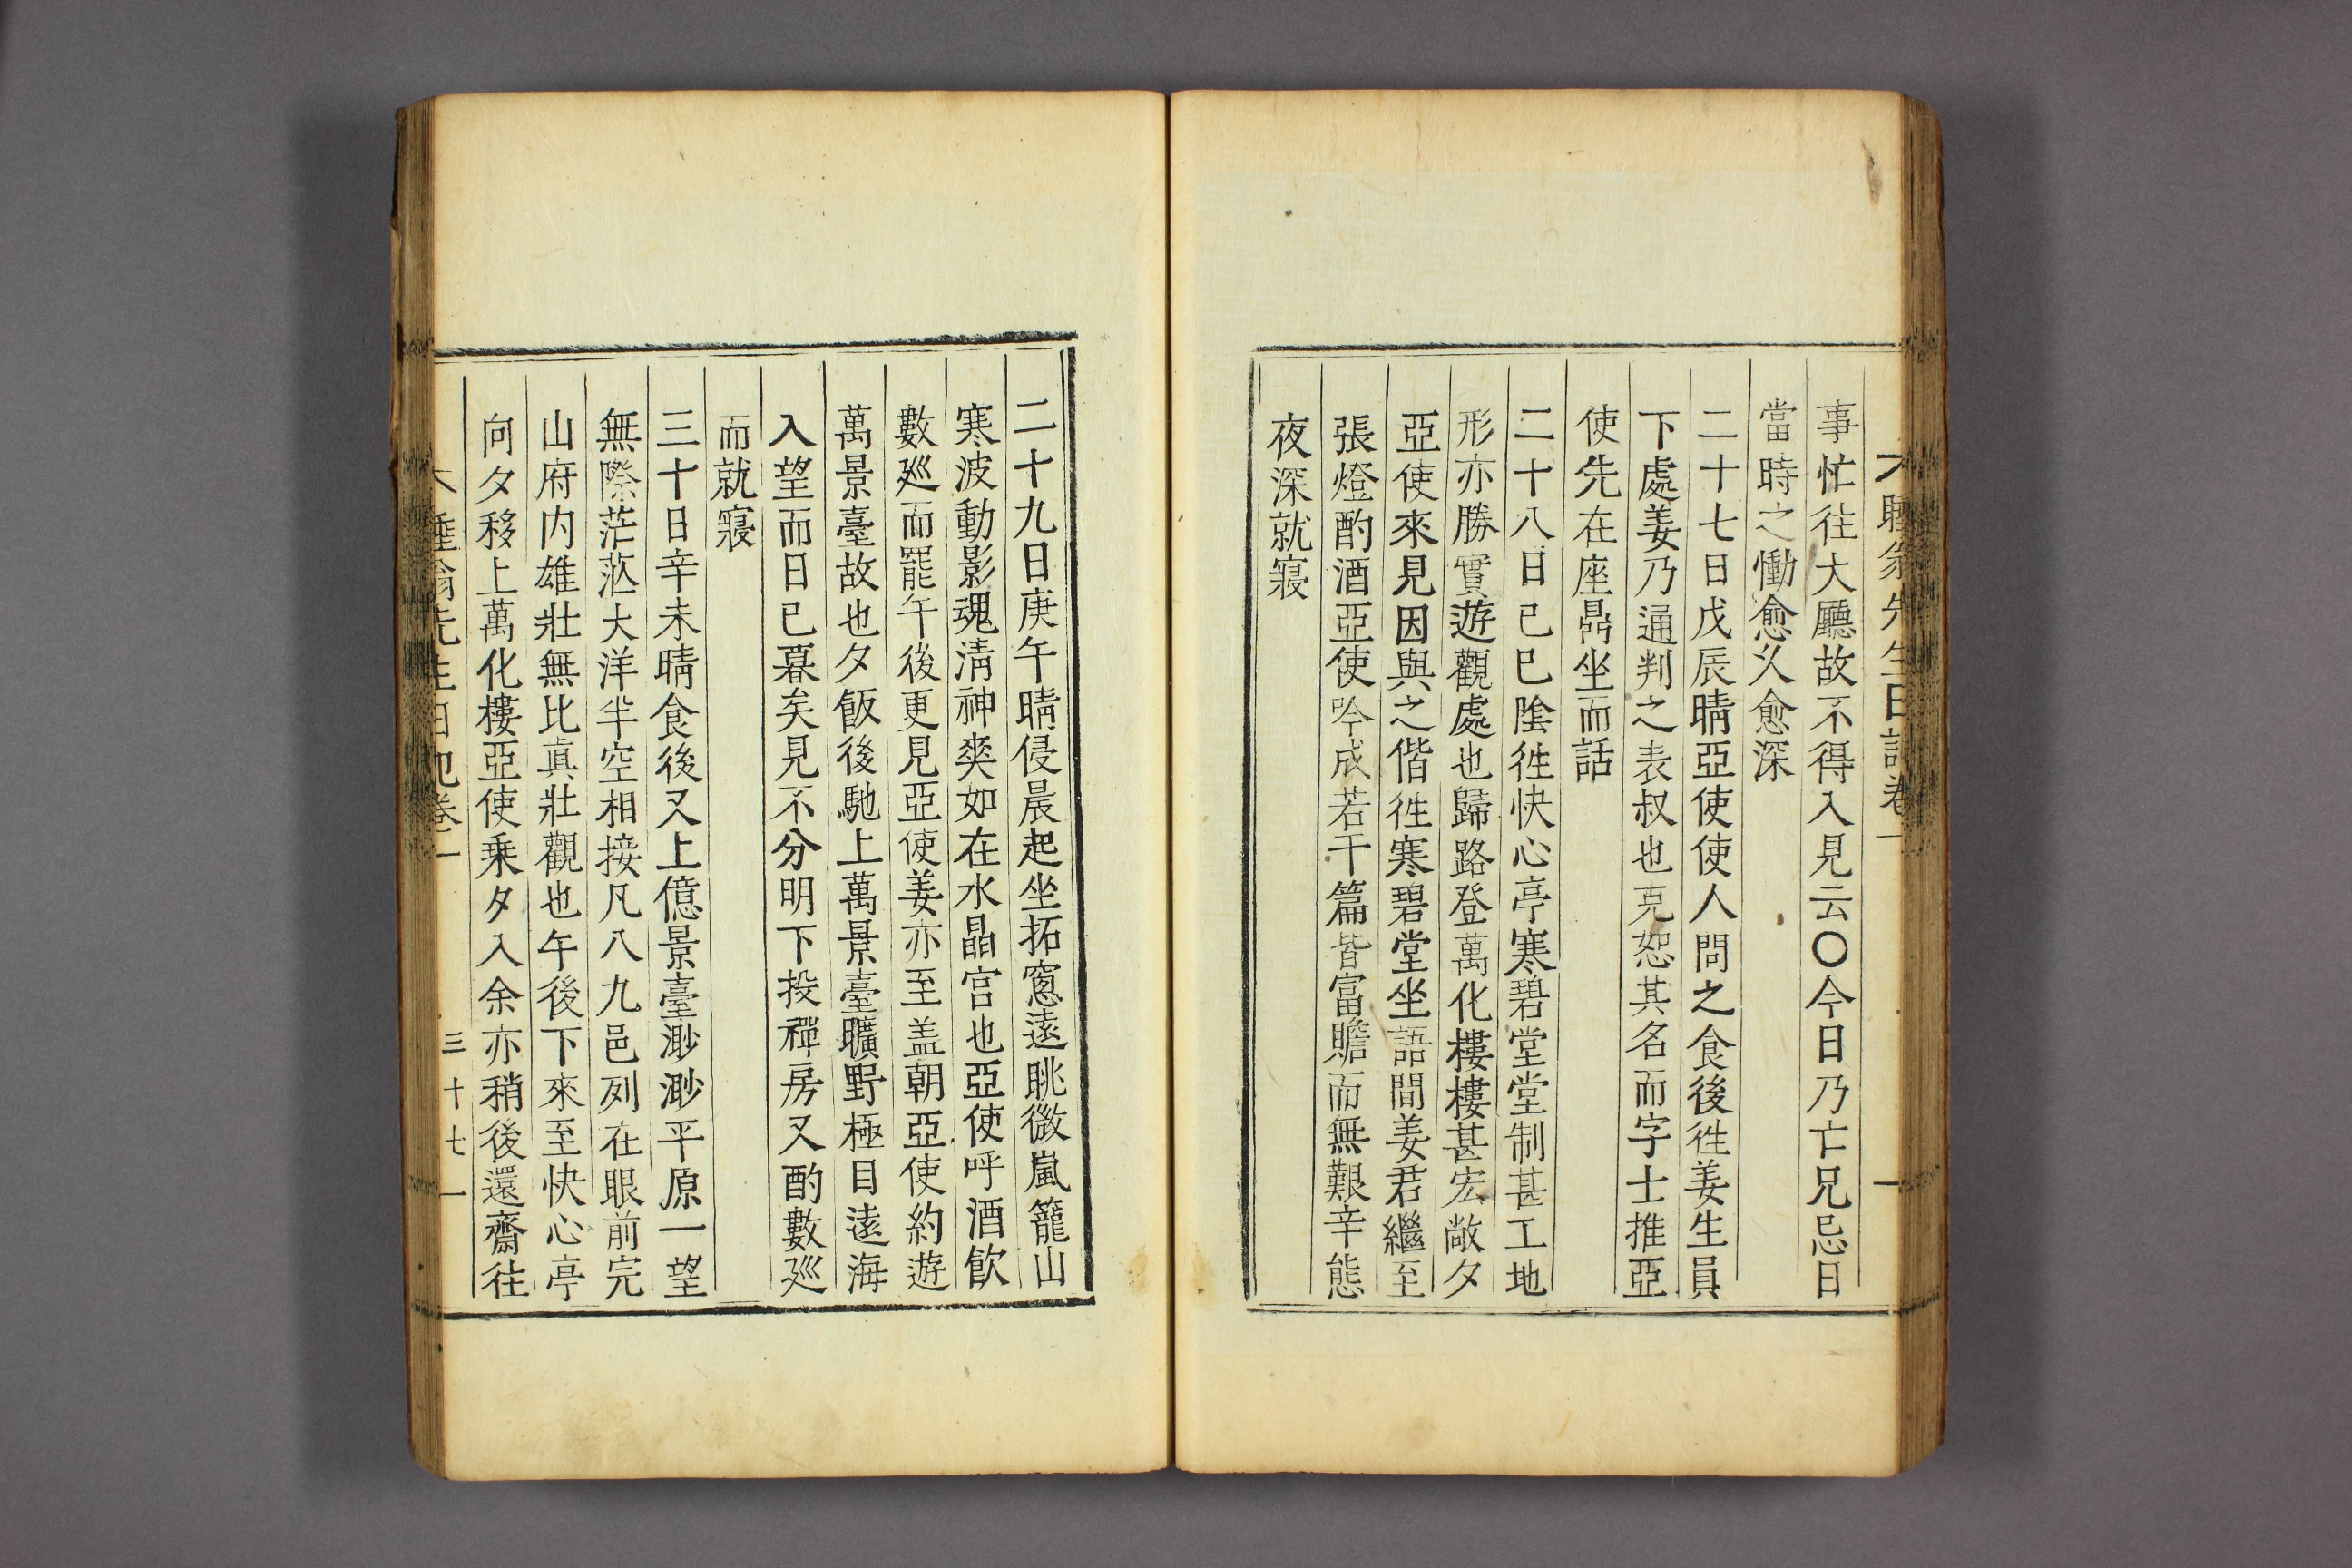 睡翁先生日記卷一
事忙往大廳故不得入見云〇今日乃亡兄忌日
當時之慟愈久愈深
二十七日戊辰晴亞使使人問之食後徃姜生員
下處姜乃通判之表叔也克恕其名而字士推亞
使先在座鼎坐而話
二十八日己巳陰徃快心亭寒碧堂堂制甚工地
形亦勝實遊觀處也歸路登萬化樓樓甚宏敞夕
亞使來見因與之偕徃寒碧堂坐語間姜君繼至
張燈酌酒亞使吟成若干篇皆富贍而無艱辛態
夜深就寢
二十九日庚午晴侵晨起坐拓窓遠眺微嵐籠山
寒波動影魂淸神爽如在水晶宮也亞使呼酒飮
數廵而罷午後更見亞使姜亦至盖朝亞使約遊
萬景臺故也夕飯後馳上萬景臺曠野極目遠海
入望而日已暮矣見不分明下投禪房又酌數廵
而就寢
三十日辛未晴食後又上億景臺渺渺平原一望
無際茫茫大洋半空相接凡八九邑列在眼前完
山府内雄壯無比眞壯觀也午後下來至快心亭
向夕移上萬化樓亞使乗夕入余亦稍後還齋往
睡翁先生日記卷一 三十七一